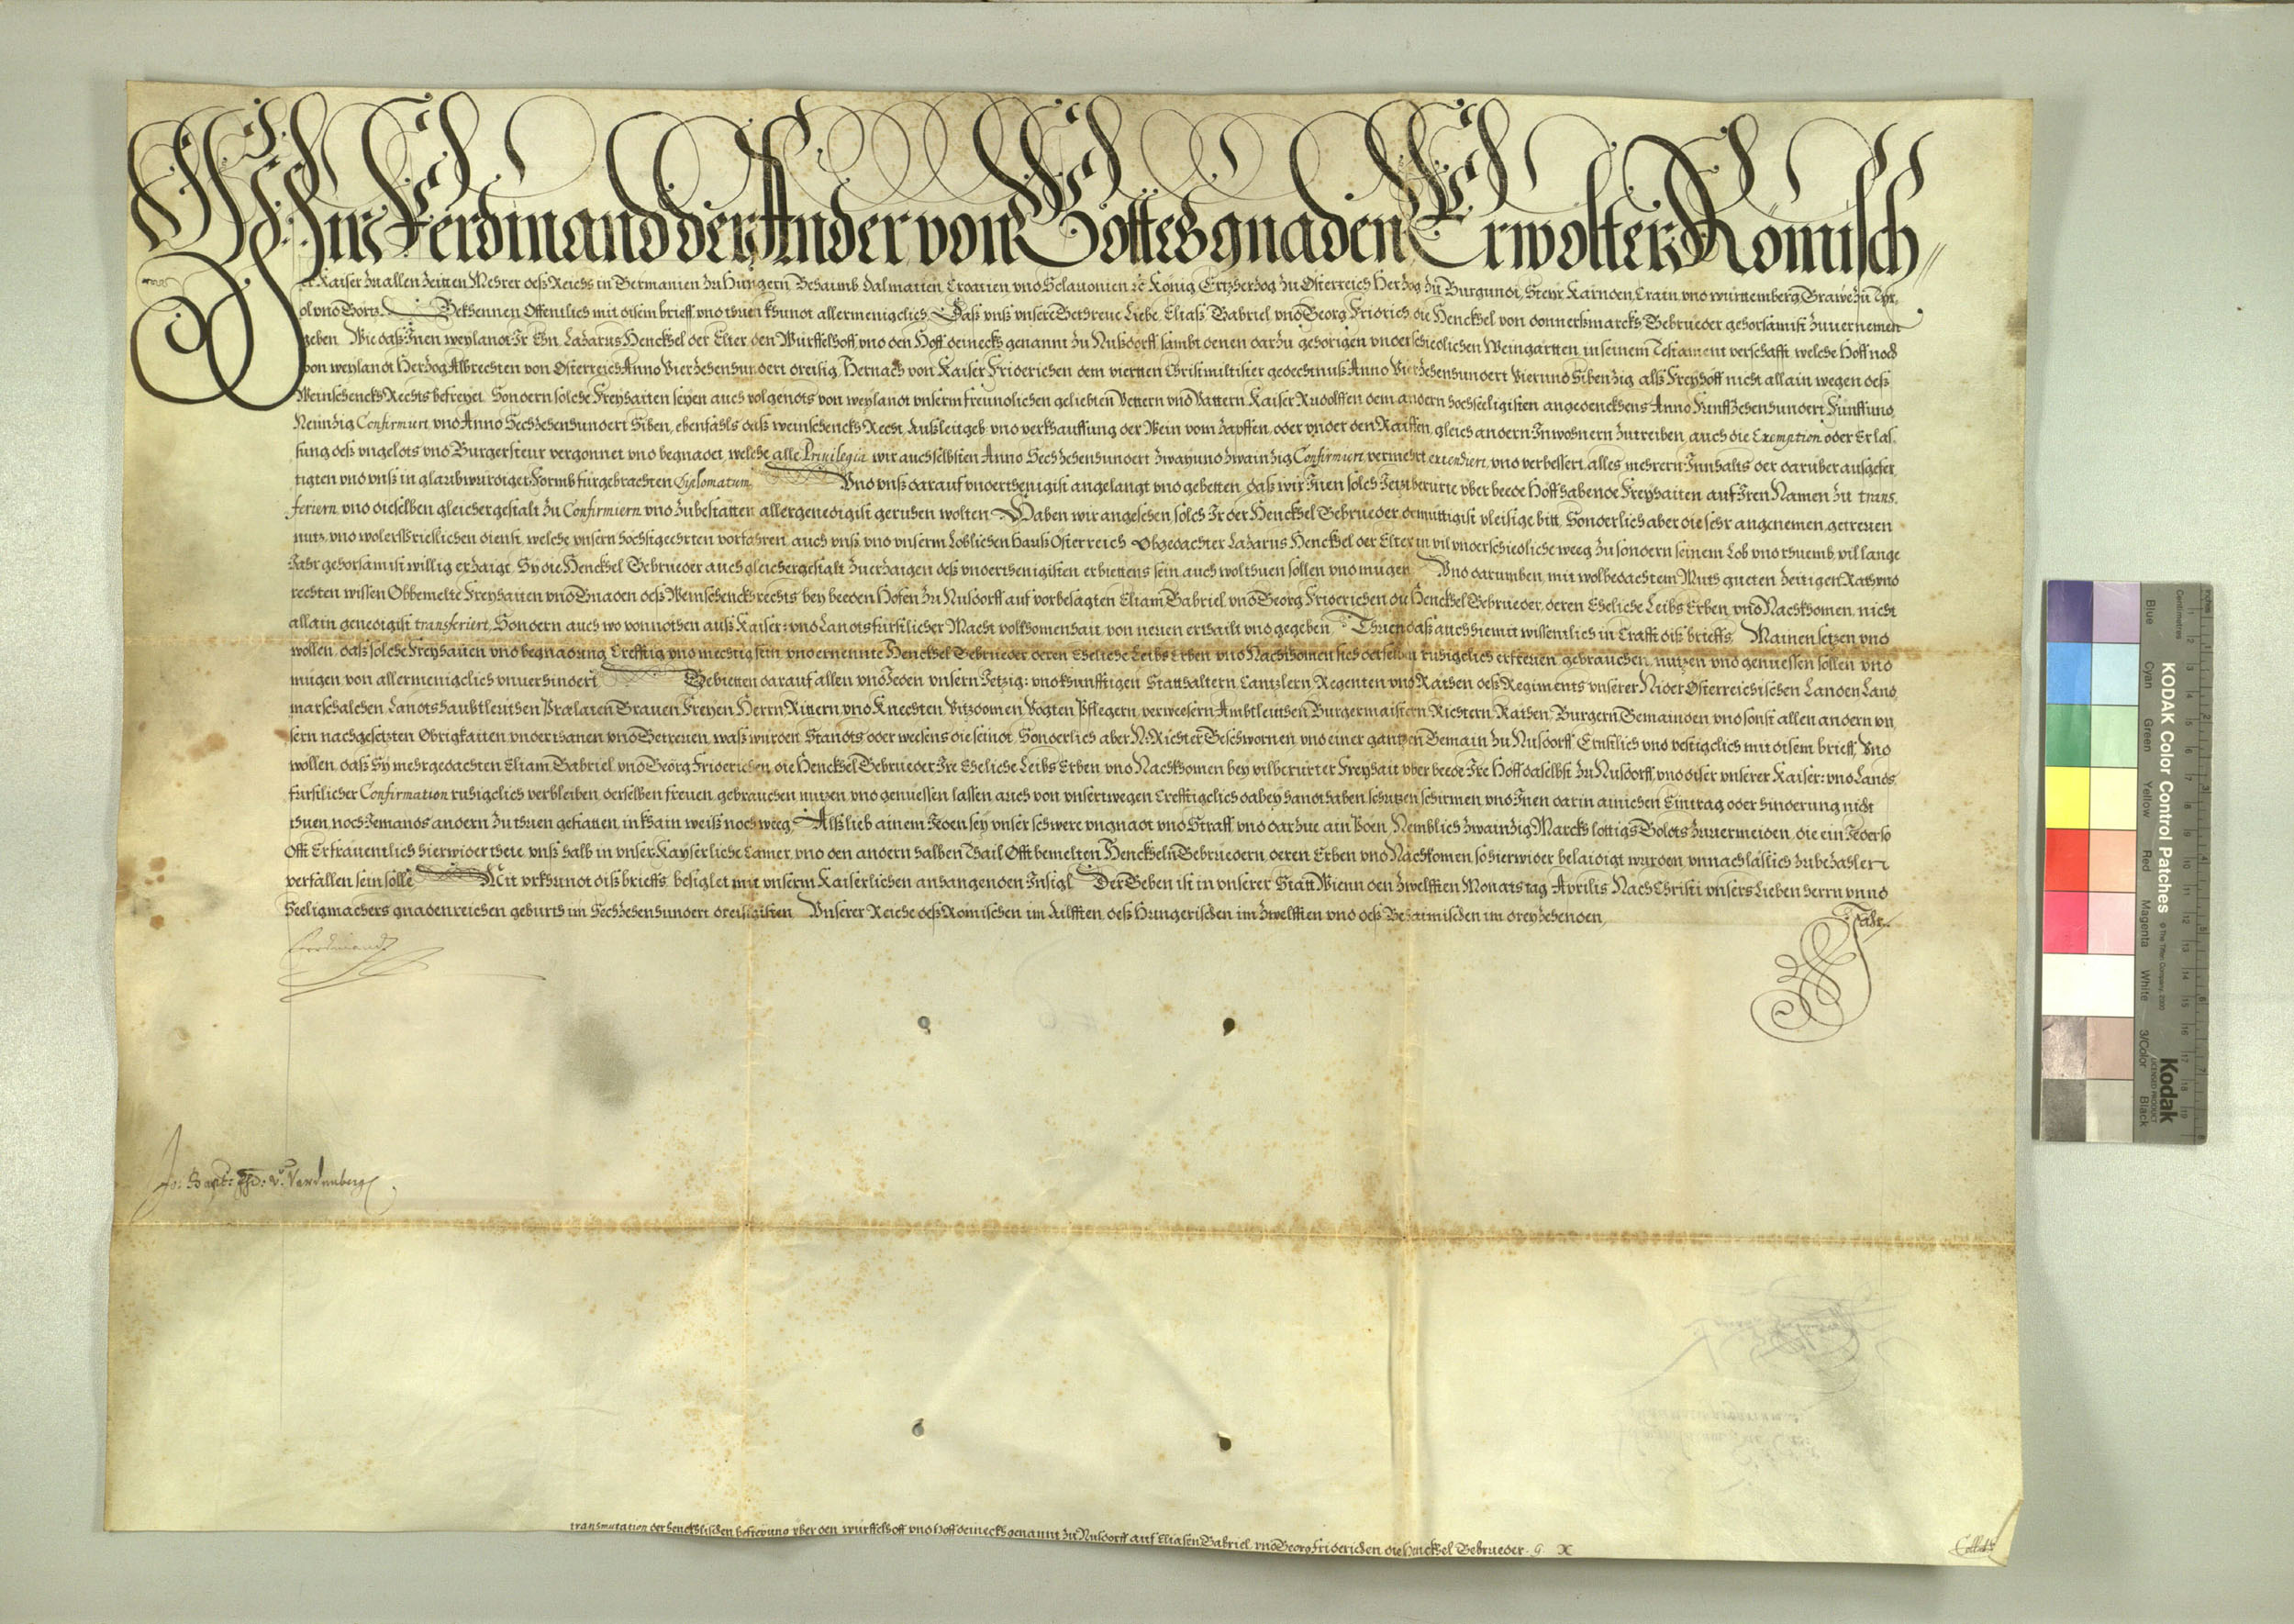 Wir Ferdinand der Ander von Gottes gnaden Erwölter Römisch
er Kaiser zu allen zeitten Mehrer deß Reichs in Germanien zu Hungern Behaimb Dalmatien Croatien vnd Sclauonien ꝛc König Ertzherzog zu Österreich Herzog zu Burgundi, Steyr, Kärnden, Crain, vnd württemberg, Grawe zu Tyr,
ol vnd Görtz. Bekhennen Offentlich mit disem brieff vnd thuen khundt allermenigclich, Daß vnß vnsere Getrewe Liebe Eliaß Gabriel vnd Georg Fridrich die Henckhel von donnerßmarckh Gebrueder gehorsamist zuuernemen
geben. Wie daß Inen weylandt Ir Ehn Lazarus Henckhel der Elter den Würffelhoff vnd den Hoff deinecks genannt zu Nußdorff sambt denen darzu gehörigen vnderschiedlichen Weingärtten in seinem Testament verschafft welche Höff noch
von weylandt Herzog Albrechten von Österreich Anno Vierzehenhundert dreisig Hernach von Kaiser Friderichen dem viertten Christmiltister gedechtnuß Anno Vierzehenhundert Vierund Sibenzig alß Freyhöff nicht allain wegen deß
Weinschenckh Rechts befreyet Sondern solche Freyhaiten seyen auch volgendts von weylandt vnserm freundlichen geliebten Vettern vnd Vattern Kaiser Rudolffen dem andern hochseeligisten angedenckhens Anno Funffzehenhundert Fünffund
Neinzig Confirmiert vnd Anno Sechzehenhundert Siben, ebenfahls daß weinschenckh Recht, Außleitgeb vnd verkhauffung der Wein vom zapffen, oder vnder den Raiffen, gleich andern Inwohnern zutreiben, auch die Exemption oder Erlas
sung deß vngelts vnd Burgersteur vergonnet vnd begnadet, welche alle Priuilegia wir auch selbsten Anno Sechzehenhundert zwayund zwainzig Confirmiert vermehrt extendiert, vnd verbessert alles mehrern Innhalts der darüber außgefer
tigten vnd vnß in glaubwürdiger Formb fürgebrachten Diplomatum. Vnd vnß darauf vnderthenigist angelangt vnd gebetten, daß wir Inen solch Jetzt berürte vber beede Höff habende Freyhaiten auf Iren Namen zu trans,
feriern vnd dieselben gleicher gestalt zu Confirmiern vnd zubestätten allergenedigist geruhen wolten Haben wir angesehen solch Ir der Henckhel Gebrueder demüttigist vleisige bitt, Sonderlich aber die sehr angenemen getreuen
nutz, vnd wolersprieslichen dienst, welche vnsern hochstgeehrten vorfahren auch vnß vnd vnserm Löblichen Hauß Österreich Obgedachter Lazarus Henckhel der Elter in vil vnderschiedliche weeg zu sondern seinem Lob vnd rhuemb, vil lange
Jahr gehorsamist willig erzaigt, Sy die Henckhel Gebrueder auch gleicher gestalt zuerzaigen deß vnderthenigisten erbiettens sein, auch wol thuen sollen vnd mügen. Vnd darumben, mit wolbedachtem Muth gueten zeitigen Rath vnd
rechten wissen Obbemelte Freyhaiten vnd Gnaden deß Weinschenckhrechts bey beeden Höfen zu Nusdorff auf vorbesagten Eliam Gabriel vnd Georg Friderichen die Henckhel Gebrueder, deren Eheliche Leibs Erben vnd Nachkhomen, nicht
allain genedigist transferiert, Sondern auch wo vonnöthen auß Kaiser: vnd Landtsfürstlicher Macht volkhomenhait, von neuen erthailt vnd gegeben. Thuen daß auch hiemit wissentlich in Crafft diß brieffs. Mainen setzen vnd
wollen, daß solche Freyhaiten vnd begnadung Crefftig vnd mechtig sein, vnd ernennte Henckhel Gebrueder, deren Eheliche Leibs Erben vnd Nachkhomen sich derselben ruhigclich erfreuen, gebrauchen, nutzen vnd genuessen sollen vnd
mügen von allermenigclich vnuerhindert. Gebietten darauf allen vnd Jeden vnsern Jetzig: vnd khunfftigen Statthaltern, Cantzlern, Regenten vnd Räthen deß Regiments vnserer Nider Österreichischen Landen Land
marschalchen Landtshaubtleuthen Prælaten Grauen Freyen Herrn Rittern vnd Knechten Vitzdomen Vögten Pflegern, verweesern Ambtleuthen Burgermaistern Richtern Räthen Burgern Gemainden, vnd sonst allen andern vn,
sern nachgesetzten Obrigkaiten vnderthanen vnd Getreuen, waß würden Standts oder weesens die seindt, Sonderlich aber N: Richter Geschwornen, vnd einer gantzen Gemain zu Nusdorff Ernstlich vnd vestigclich mit disem brieff, Vnd
wollen, daß Sy mehrgedachten Eliam Gabriel vnd Georg Friderichen die Henckhel Gebrueder Ire Eheliche Leibs Erben vnd Nachkhomen bey vilberürter Freyhait vber beede Ire Höff daselbst zu Nusdorff, vnd diser vnserer Kaiser: vnd Lands,
fürstlicher Confirmation ruhigclich verbleiben, derselben freuen, gebrauchen nutzen vnd genuessen lassen auch von vnsertwegen Crefftigclich dabey handthaben schutzen schirmen vnd Inen darin ainichen Eintrag oder hinderung nicht
thuen noch Jemands andern zu thuen gestatten, in khain weiß noch weeg, Alß lieb ainem Jeden sey vnser schwere vngnadt vnd Straff, vnd darzue ain Poen, Nemblich zwainzig Marckh löttigs Goldts zuuermeiden, die ein Jeder so
Offt Er frauentlich hierwider thete, vnß halb in vnser Kayserliche Camer, vnd den andern halben Thail Offtbemelten Henckheln Gebruedern, deren Erben vnd Nachkomen so hierwider belaidigt wurden, vnnachläslich zubezahlen
verfallen sein solle. Mit vrkhundt diß brieffs besiglet mit vnserm Kaiserlichen anhangenden Insigl. Der Geben ist in vnserer Statt Wienn den zwelfften Monatstag Aprilis Nach Christi vnsers Lieben herrn vnnd
Seeligmachers gnadenreichen geburth im Sechzehenhundert dreisigisten Vnserer Reiche deß Römischen im Ailfften, deß Hungerischen im zwelfften vnd deß Behaimischen im dreyzehenden,
Jahr
Ferdinand
Jo: Bapt: v. Verdenberg
transmutation der henckhlischen befreyung vber den würffelhoff vnd hoff deinecks genannt zu Nusdorff auf Eliasen Gabriel vnd Georg Friderichen die Henckhel Gebrueder.